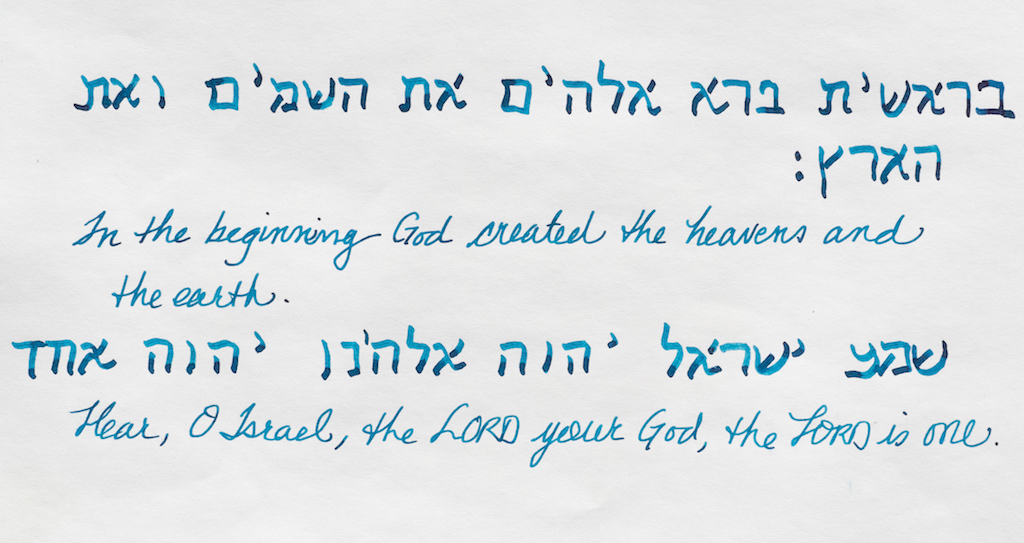 בראשית ברא אלהים את השמים ואת
הארץ:
In the beginning God created the heavens and
the earth.
שמע ישראל יהוה אלהינו יהוה אחד
Hear, O Israel, the LORD your God, the LORD is one.